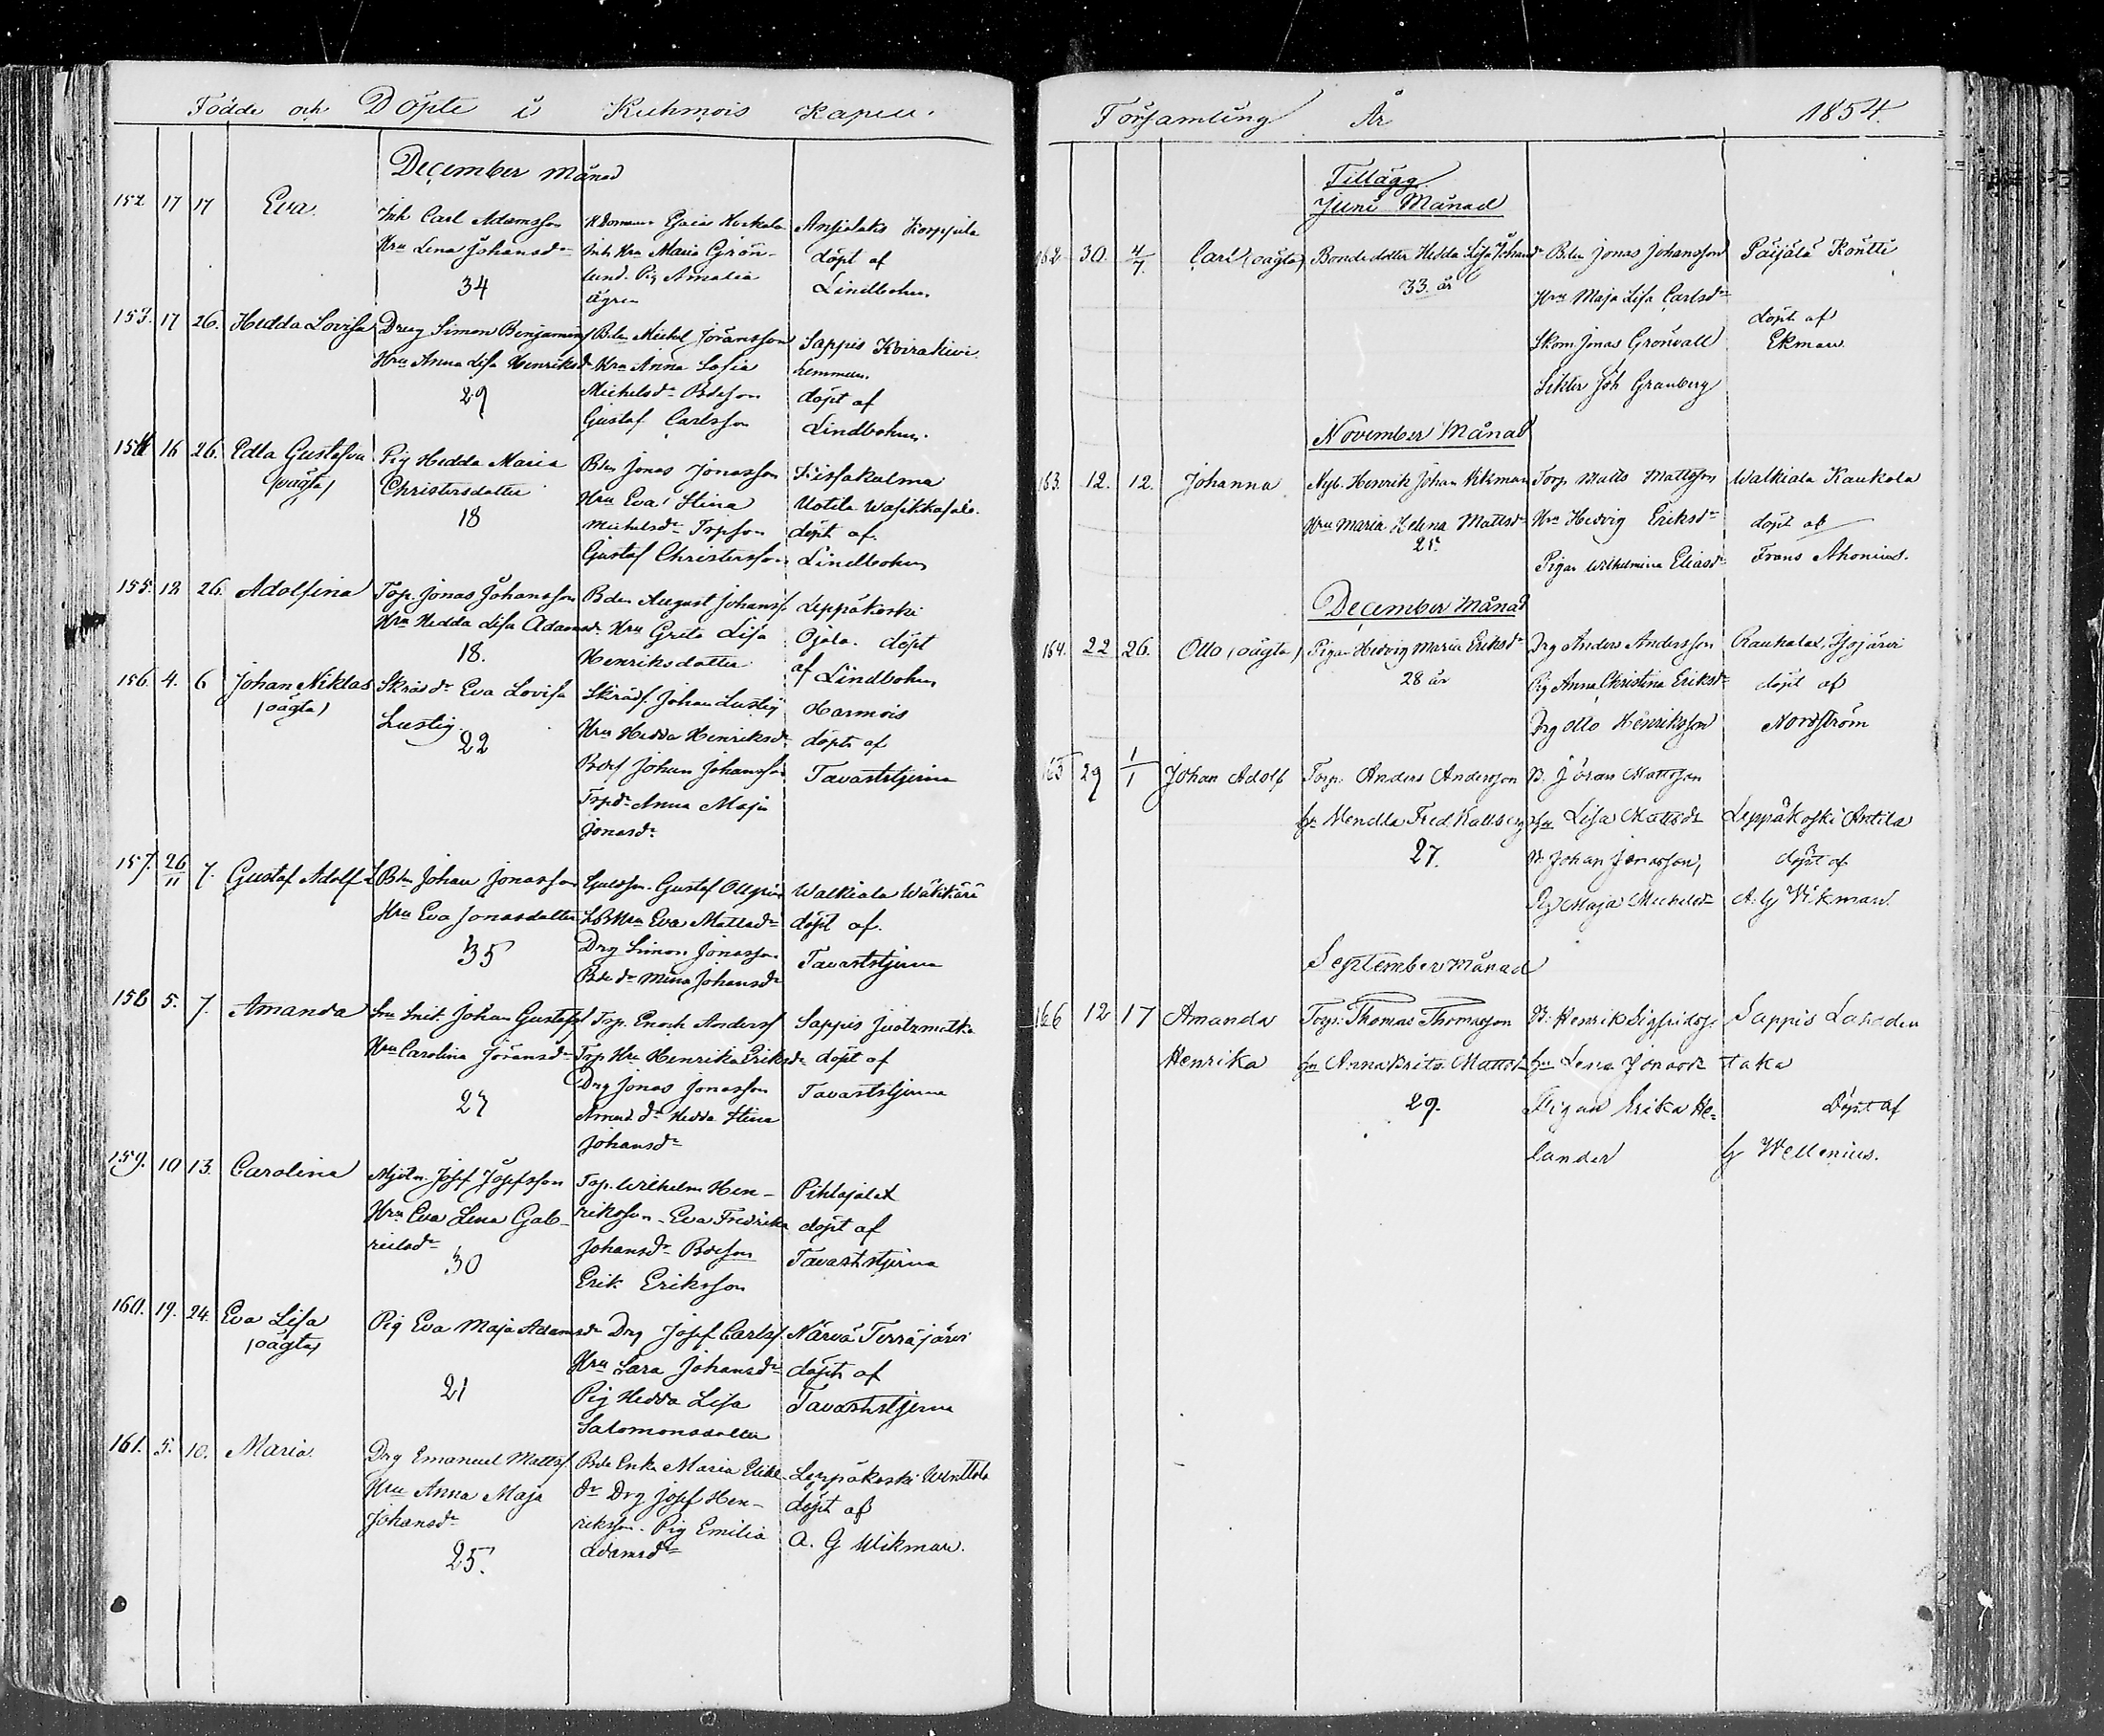 Födde och Döpte i Kuhmois Kapell
December Månad
152 17 17 Eva.
Inh Carl Adamsson
Hru Lena Johansdr
34
Inh Hru Maria Grön-
lund. Pig Amalia
Ågren
Koppila
döpt af
Lindbohm
153. 17 26. Hedda Lovisa
Dreng Simon Benjamins
Hru Anna Lisa Henriksdr
29
Bdn Michel Jöransson
Hru Anna Sofia
Michelsdr Bdeson
Gustaf Carlsson
Sappis Kvirakivi
hemman.
döpt af
Lindbohm.
154 16 26. Edla Gustafva
(oägta)
Pig Hedda Maria
Christersdotter
18
Bdn Jonas Jonasson
Hru Eva Stina
Michelsdr Torpson
Gustaf Christersson
Kissakulma
Uotila
döpt af
Lindbohm
155. 12 26. Adolfina
Torp. Jonas Johansson
Hru Hedda Lisa Adamsdr
18.
Bden August Johanss
Hru Greta Lisa
Henriksdotter
Leppäkoski
Ojala. döpt
af Lindbohm
156. 4. 6 Johan Niklas
(oägta)
Skräd dr Eva Lovisa
Lustig.
22
Skräd. Johan Lustig
Hru Hedda Henriksdr
Bdes Johan Johansson
Torpdr Anna Maja
Jonasdr
Harmois
döpt af
Tavaststjerna
157. 26/11 7. Gustaf Adolf
Bdn Johan Jonasson
Hru Eva Jonasdotter
35
Gustaf Ollgren
Hru Eva Mattsdr
Drg Simon Jonasson
Bde dr Mina Johansdr
Walkiala Wäkkärä
döpt af.
Tavaststjerna
158 5. 7. Amanda
Johan Gustafss
Hru Carolina Jöransdr
27
Trp. Enoch Anderss
Trp Hru Henrika Eriksdr
Drg Jonas Jonasson
dr Hedda Stina
Johansdr
Sappis
döpt af
Tavaststjerna
159. 10 13. Carolina
Mjöln. Josef Josefsson
Hru Eva Lena Gab-
rielsdr
30
Torp. Wilhelm Hen-
riksson Eva Fredrika
Johansdr Bdeson
Erik Eriksson
Pihlajalax
döpt af
Tavaststjerna
160. 19. 24. Eva Lisa
(oägta)
Pig Eva Maja Adamsdr
21
Drg Josef Carlss
Hru Sara Johansdr
Pig Hedda Lisa
Salomonsdotter
Närvä Terräjärvi
döpt af
Tavaststjerna
161. 5. 10. Maria.
Drg Emanuel Mattss
Hru Anna Maja
Johansdr
25.
Bde Enka Maria
dr Drg Josef Hen-
riksson. Pig Emilia
Adamsdr
Leppäkoski Wenttola
döpt af
A. G Wikman.
Församling År 1854.
Tillägg
Juni Månad
162 30. 4/7. Carl (oägta)
Bondedotter Hedda Lisa Johansdr
33. år
Bden Jonas Johansson
Hru Maja Lisa Carlsdr
Skom Jonas Grönvall
Joh Granberg
Päijälä Kontti
döpt af
Ekman
November Månad
163. 12. 12. Johanna
Nyb. Henrik Johan Vikman
Hru Maria Helena Mattsdr
25.
Torp Matts Mattsson
Hru Hedvig Eriksdr
Pigan Wilhelmina Eliasdr
Walkiala Kaukola
döpt af
Frans Ahonius.
December Månad
164. 22 26. Otto (oägta)
Pigan Hedvig Maria Eriksdr
28 år
Drg Anders Andersson
Pig Anna Christina Eriksdr
Drg Otto Henriksson
Isojärvi
döpt af
Nordström
165 29 1/1 Johan Adolf
Torp. Anders Andersson
27.
B. Jöran Mattsson
hu Lisa Mattsdr
B Johan Jönasson,
Pig Maja Michelsdr
Leppäkoski Antila
döpt af
A. G Vikman.
September Månad
166 12 17 Amanda
Henrika
Torp. Thomas Thomasson
hu Anna Brita Mattsdr
29.
B. Henrik Sigfridss
hu Lena Jönsdr
Pigan Erika He-
lander
Sappis Lahden
taka
Döpt af
G Wellenius.